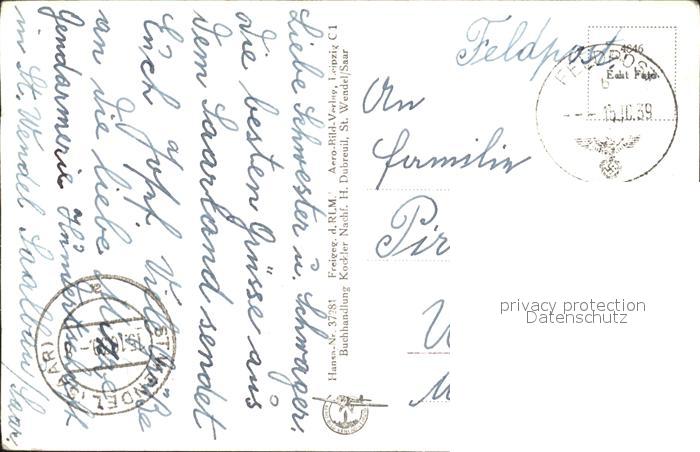 Feldpost
4846
Echt Foto
FELDPOST
b
15.10.39
An
Familie
Pir
privacy protection
Datenschutz
Liebe Schwester u. Schwager.
Die besten Grüsse aus
dem Saarland sendet
Euch Jupp. Viele Grüße
an die liebe
Gendarmerie
in St. Wendel Saalbau / Saar.
Hansa-Nr. 37281 Freigeg. d. RLM. Aero-Bild-Verlag, Leipzig C 1
Buchhandlung Kockler Nachf. H. Dubreuil, St. Wendel/Saar
ST. WENDEL (SAAR)